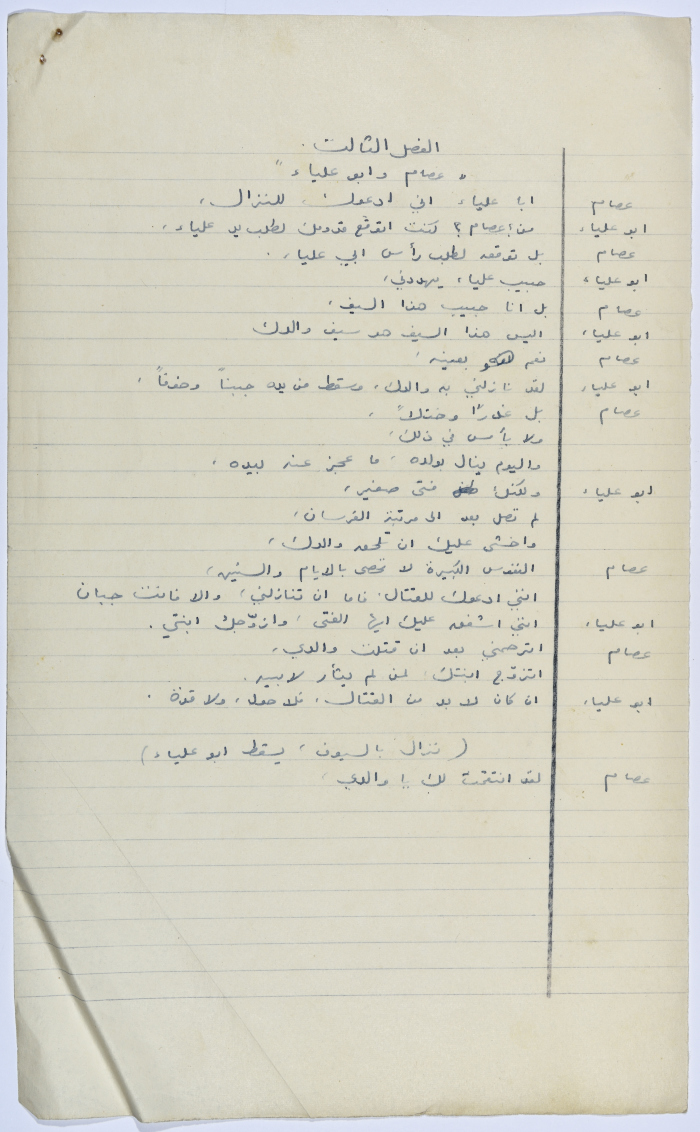 الفصل الثالث.
" عصام وابو علياء "
عصام ابا علياء اني ادعوك للنزال،
ابو علياء من؟ عصام؟ كنت اتوقع قدومك لطلب يد علياء.
عصام بل توقعه لطلب رأس ابي علياء.
ابو علياء حبيب علياء يهددني،
عصام بل انا حبيب هذا السيف،
ابو علياء اليس هذا السيف هو سيف والدك
عصام نعم هو بعينه،
ابو علياء لقد نازلني به والدك، وسقط من يده جبناً وخوفاً،
عصام بل غدراً وختلاً،
ولا بأس في ذلك،
واليوم ينال بولده، ما عجز عنه بيده،
ابو علياء ولكنك فتى صغير،
لم تصل بعد الى مرتبة الفرسان،
واخشى عليك ان تلحق والدك،
عصام النفوس الكبيرة لا تحصى بالايام والسنين،
انني ادعوك للقتال. فاما ان تنازلني، والا فانت جبان
ابو علياء انني اشفق عليك ايها الفتى، وازوّجك ابنتي.
عصام اترحمني بعد ان قتلت والدي،
اتزوّج ابنتك لمن لم يثأر لابيه.
ابو علياء ان كان لا بد من القتال، فلا حول، ولا قوة.
( نزال بالسيوف، يسقط ابو علياء )
عصام لقد انتقمت لك يا والدي،